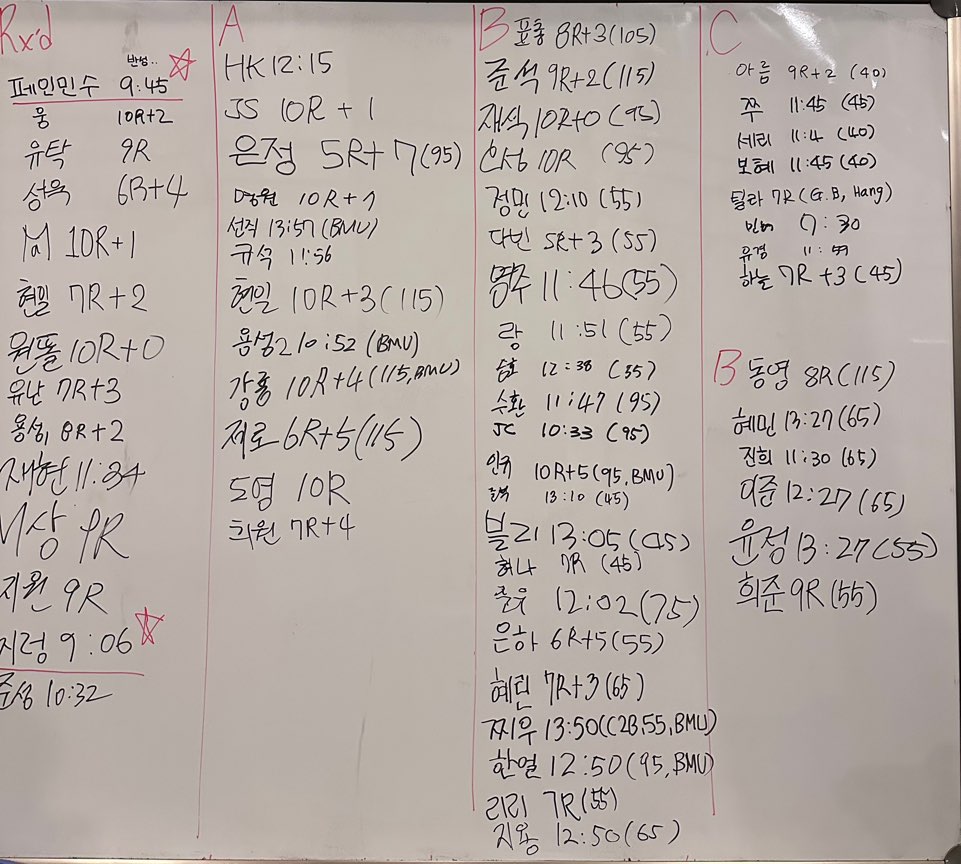 Rx'd
반성..
페인민수 9:45
웅 10R+2
유탁 9R
성욱 6R+4
10R+1
현밀 7R+2
원똘 10R+0
유난 7R+3
용성1 8R+2
재현 11:34
상 9R
지원 9R
지렁 9:06
준성 10:32
A
HK 12:15
JS 10R+1
은정 5R+7(95)
명원 10R+1
선직 13:57(BMU)
규석 11:56
현일 10R+3(115)
용성2 10:52(BMU)
강룡 10R+4(115,BMU)
저로 6R+5(115)
도영 10R
희원 7R+4
B
표층 8R+3(105)
준석 9R+2(115)
재식 10R+0(95)
10R (95)
정민 12:10(55)
다빈 5R+3(55)
명주 11:46(55)
랑 11:51(55)
승호 12:38(35)
수환 11:47(95)
JC 10:33(95)
인규 10R+5(95,BMU)
13:10(45)
블리 13:05(45)
허나 7R(45)
12:02(75)
은하 6R+5(55)
혜린 7R+3(65)
찌우 13:50(C2B,55,BMU)
한열 12:50(95,BMU)
리리 7R(55)
지용 12:50(65)
C
아름 9R+2(40)
쭈 11:45(45)
세리 11:4 (40)
보혜 11:45(40)
틸라 7R(G.B, Hang)
7:30
유경 11:59
하늘 7R+3(45)
B
동영 8R(115)
혜민 13:27(65)
진희 11:30(65)
이준 12:27(65)
윤정 13:27(55)
희준 9R(55)